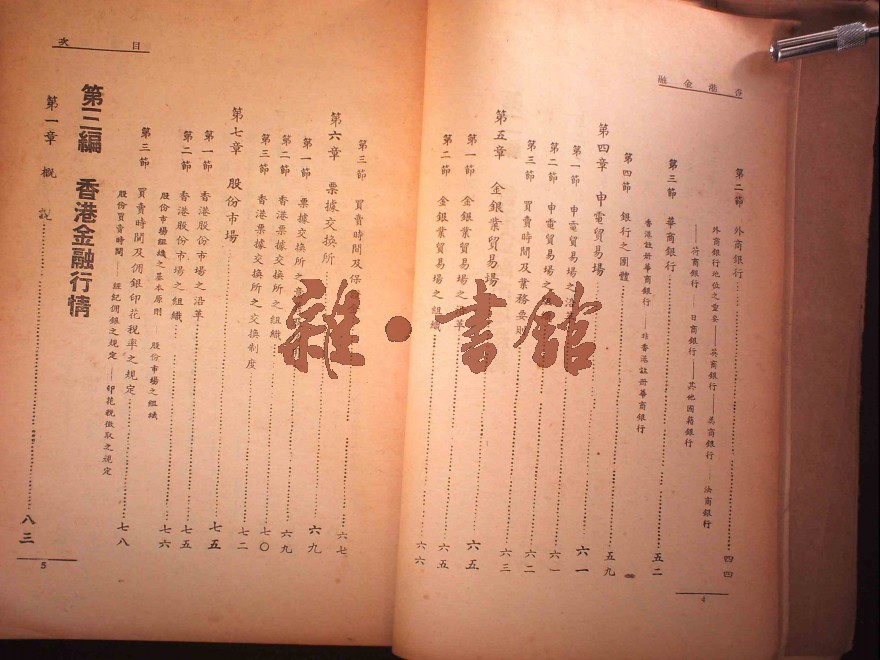 香港金融
第二節 外商銀行 四四
外商銀行地位之重要——英商銀行——美商銀行——法商銀行
——荷商銀行——日商銀行——其他國籍銀行
第三節 華商銀行 五二
香港註册華商銀行——非香港註册華商銀行
第四節 銀行之團體 五九
第四章 申電貿易場 六一
第一節 申電貿易場之沿革 六一
第二節 申電貿易場之組織 六二
第三節 買賣時間及業務要則 六三
第五章 金銀業貿易場 六五
第一節 金銀業貿易場之沿革 六五
第二節 金銀業貿易場之組織 六六
4
目次
第三節 買賣時間及保 六七
第六章 票據交換所 六九
第一節 票據交換所之 六九
第二節 香港票據交換所之組織 七〇
第三節 香港票據交換所之交換制度 七二
第七章 股份市場 七五
第一節 香港股份市場之沿革 七五
第二節 香港股份市場之組織 七六
股份市場組織之基本原則——股份市場之組織
第三節 買賣時間及佣銀印花稅率之規定 七八
股份買賣時間——經紀佣銀之規定——印花稅徵取之規定
第三編 香港金融行情
第一章 概說 八三
5
雜·書館